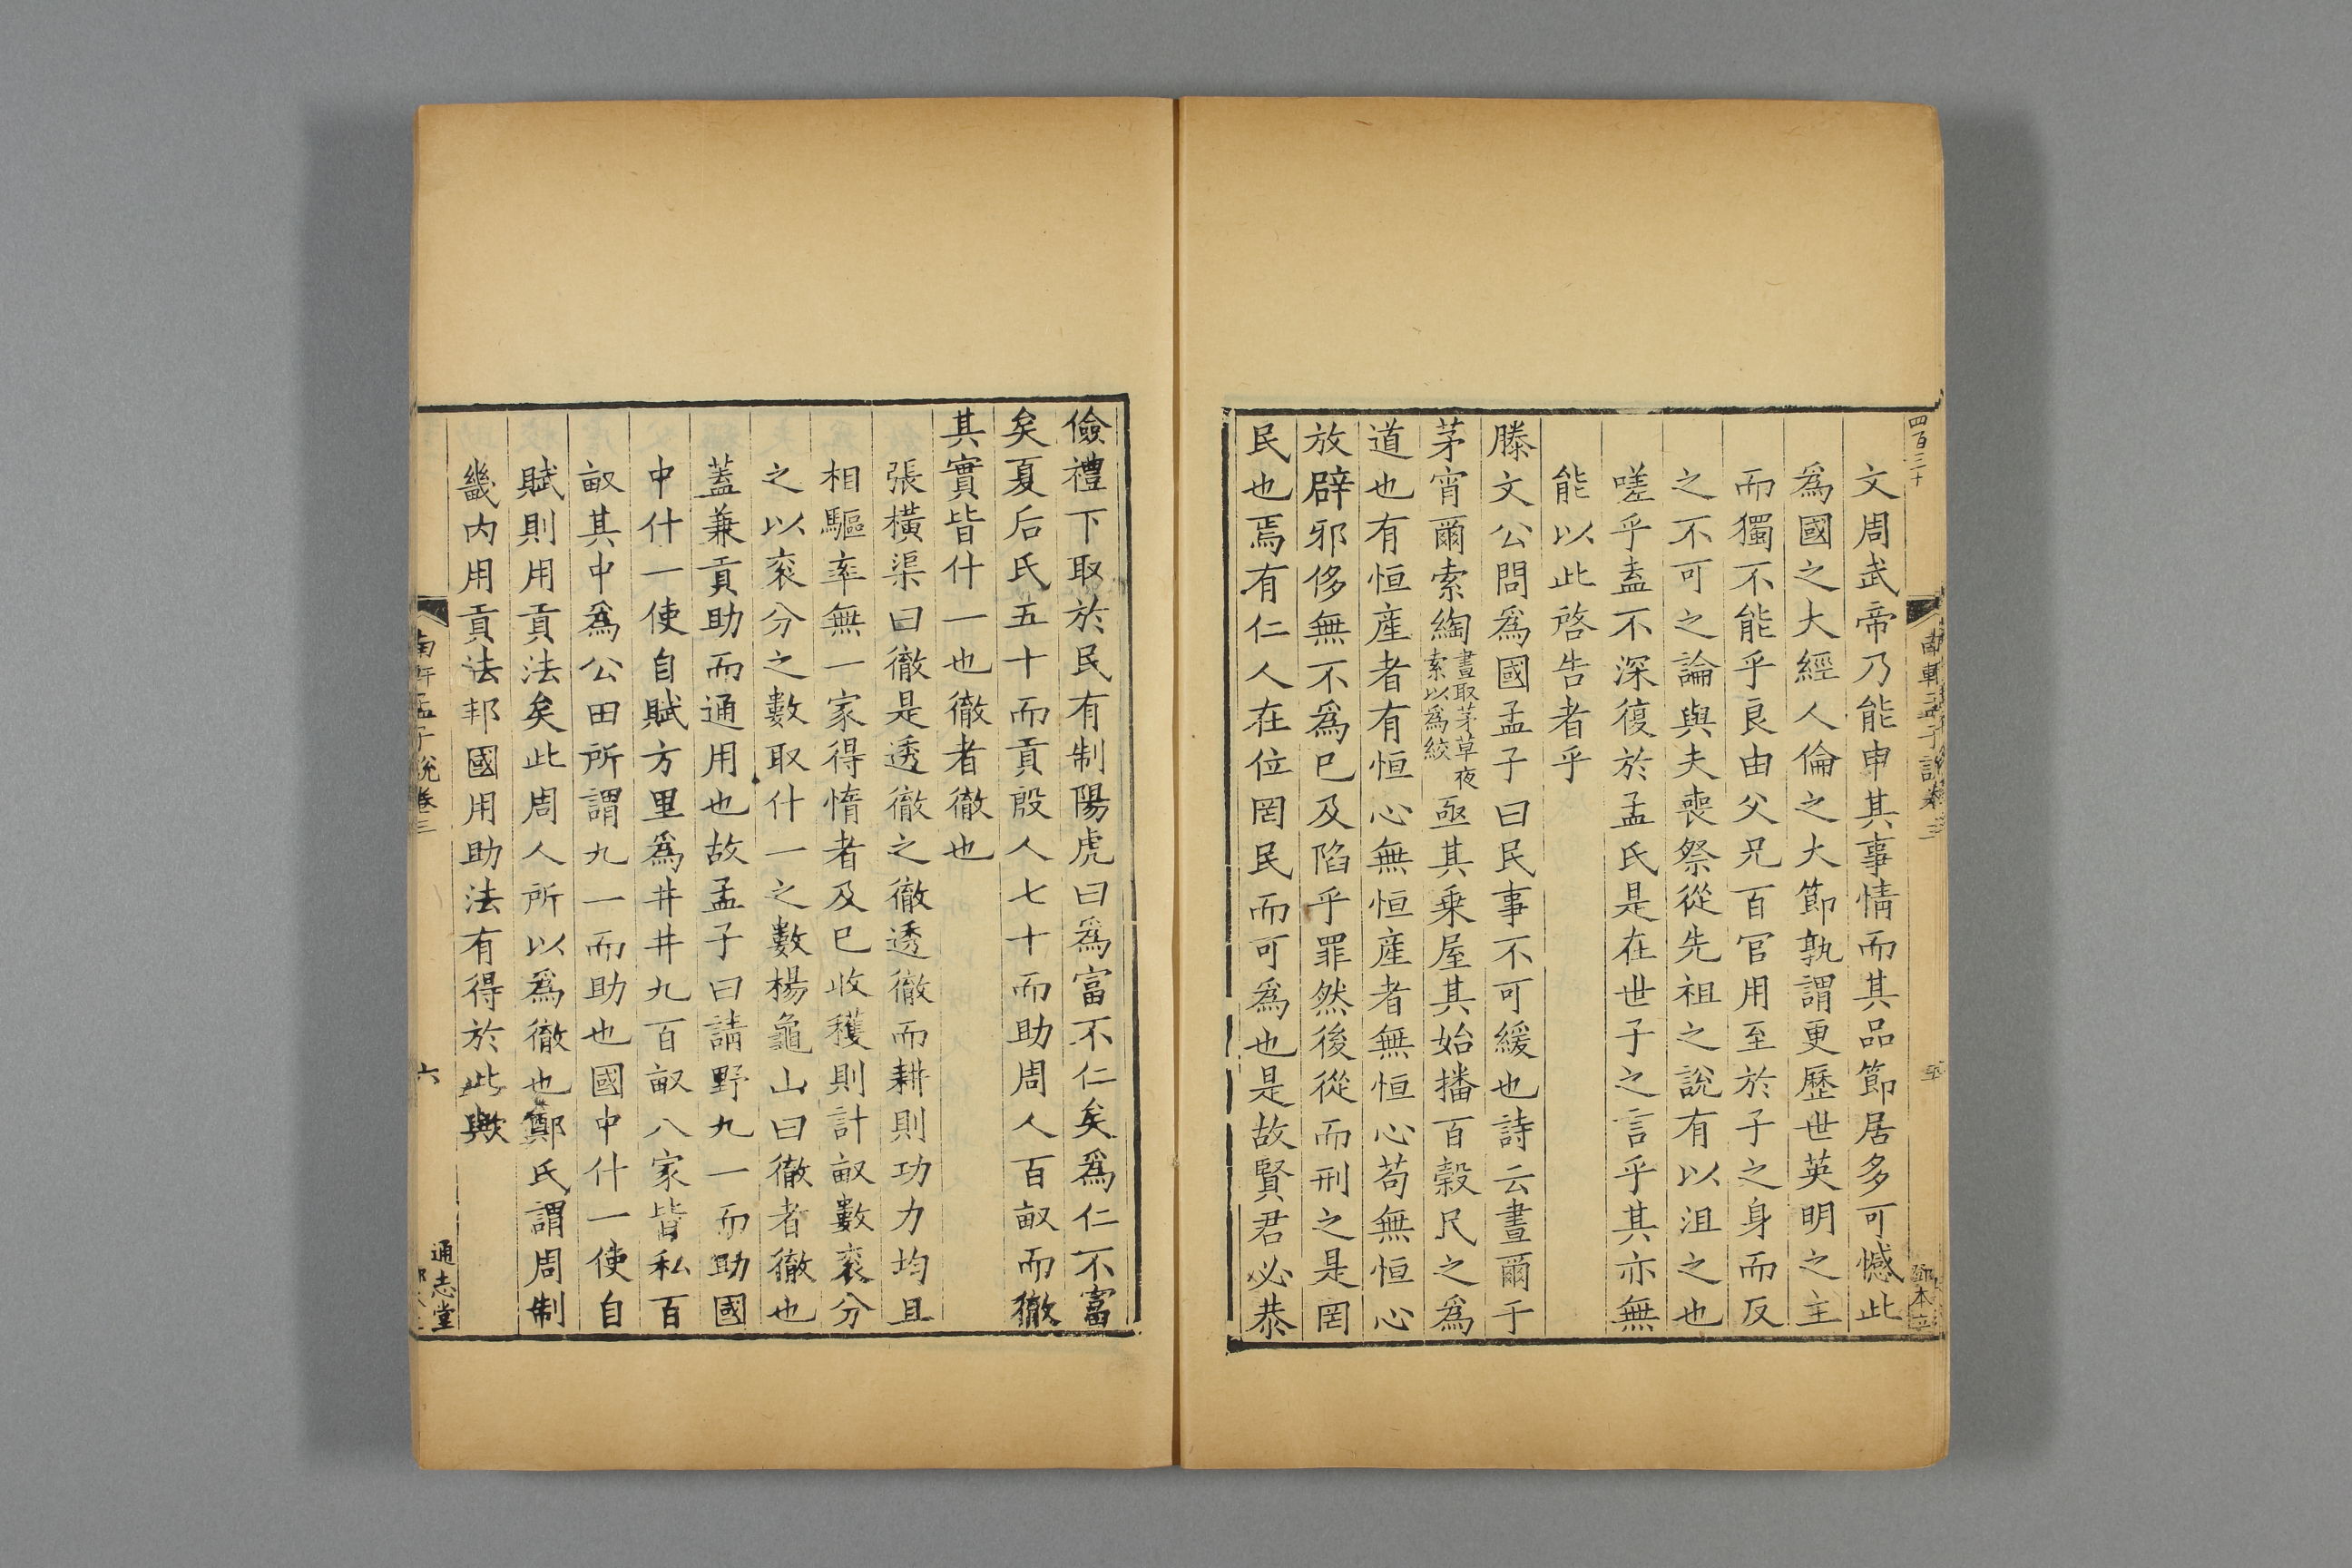 四百三十
南軒孟子說卷三
五
文周武帝乃能申其事情而其品節居多可憾此
爲國之大經人倫之大節孰謂更歷世英明之主
而獨不能乎良由父兄百官用至於子之身而反
之不可之論與夫喪祭從先祖之說有以沮之也
嗟乎盍不深復於孟氏是在世子之言乎其亦無
能以此啓告者乎
滕文公問爲國孟子曰民事不可緩也詩云晝爾于
茅宵爾索綯晝取茅草夜索以爲絞亟其乗屋其始播百榖民之爲
道也有恒産者有恒心無恒産者無恒心苟無恒心
放辟邪侈無不爲已及陷乎罪然後從而刑之是罔
民也焉有仁人在位罔民而可爲也是故賢君必恭
儉禮下取於民有制陽虎曰爲富不仁矣爲仁不富
矣夏后氏五十而貢殷人七十而助周人百畝而徹
其實皆什一也徹者徹也
張橫渠曰徹是透徹之徹透徹而耕則功力均且
相驅率無一家得惰者及已收穫則計畝數裒分
之以裒分之數取什一之數楊龜山曰徹者徹也
蓋兼貢助而通用也故孟子曰請野九一而助國
中什一使自賦方里爲井井九百畝八家皆私百
畝其中爲公田所謂九一而助也國中什一使自
賦則用貢法矣此周人所以爲徹也鄭氏謂周制
畿内用貢法邦國用助法有得於此歟
南軒孟子說卷三
六
通志堂